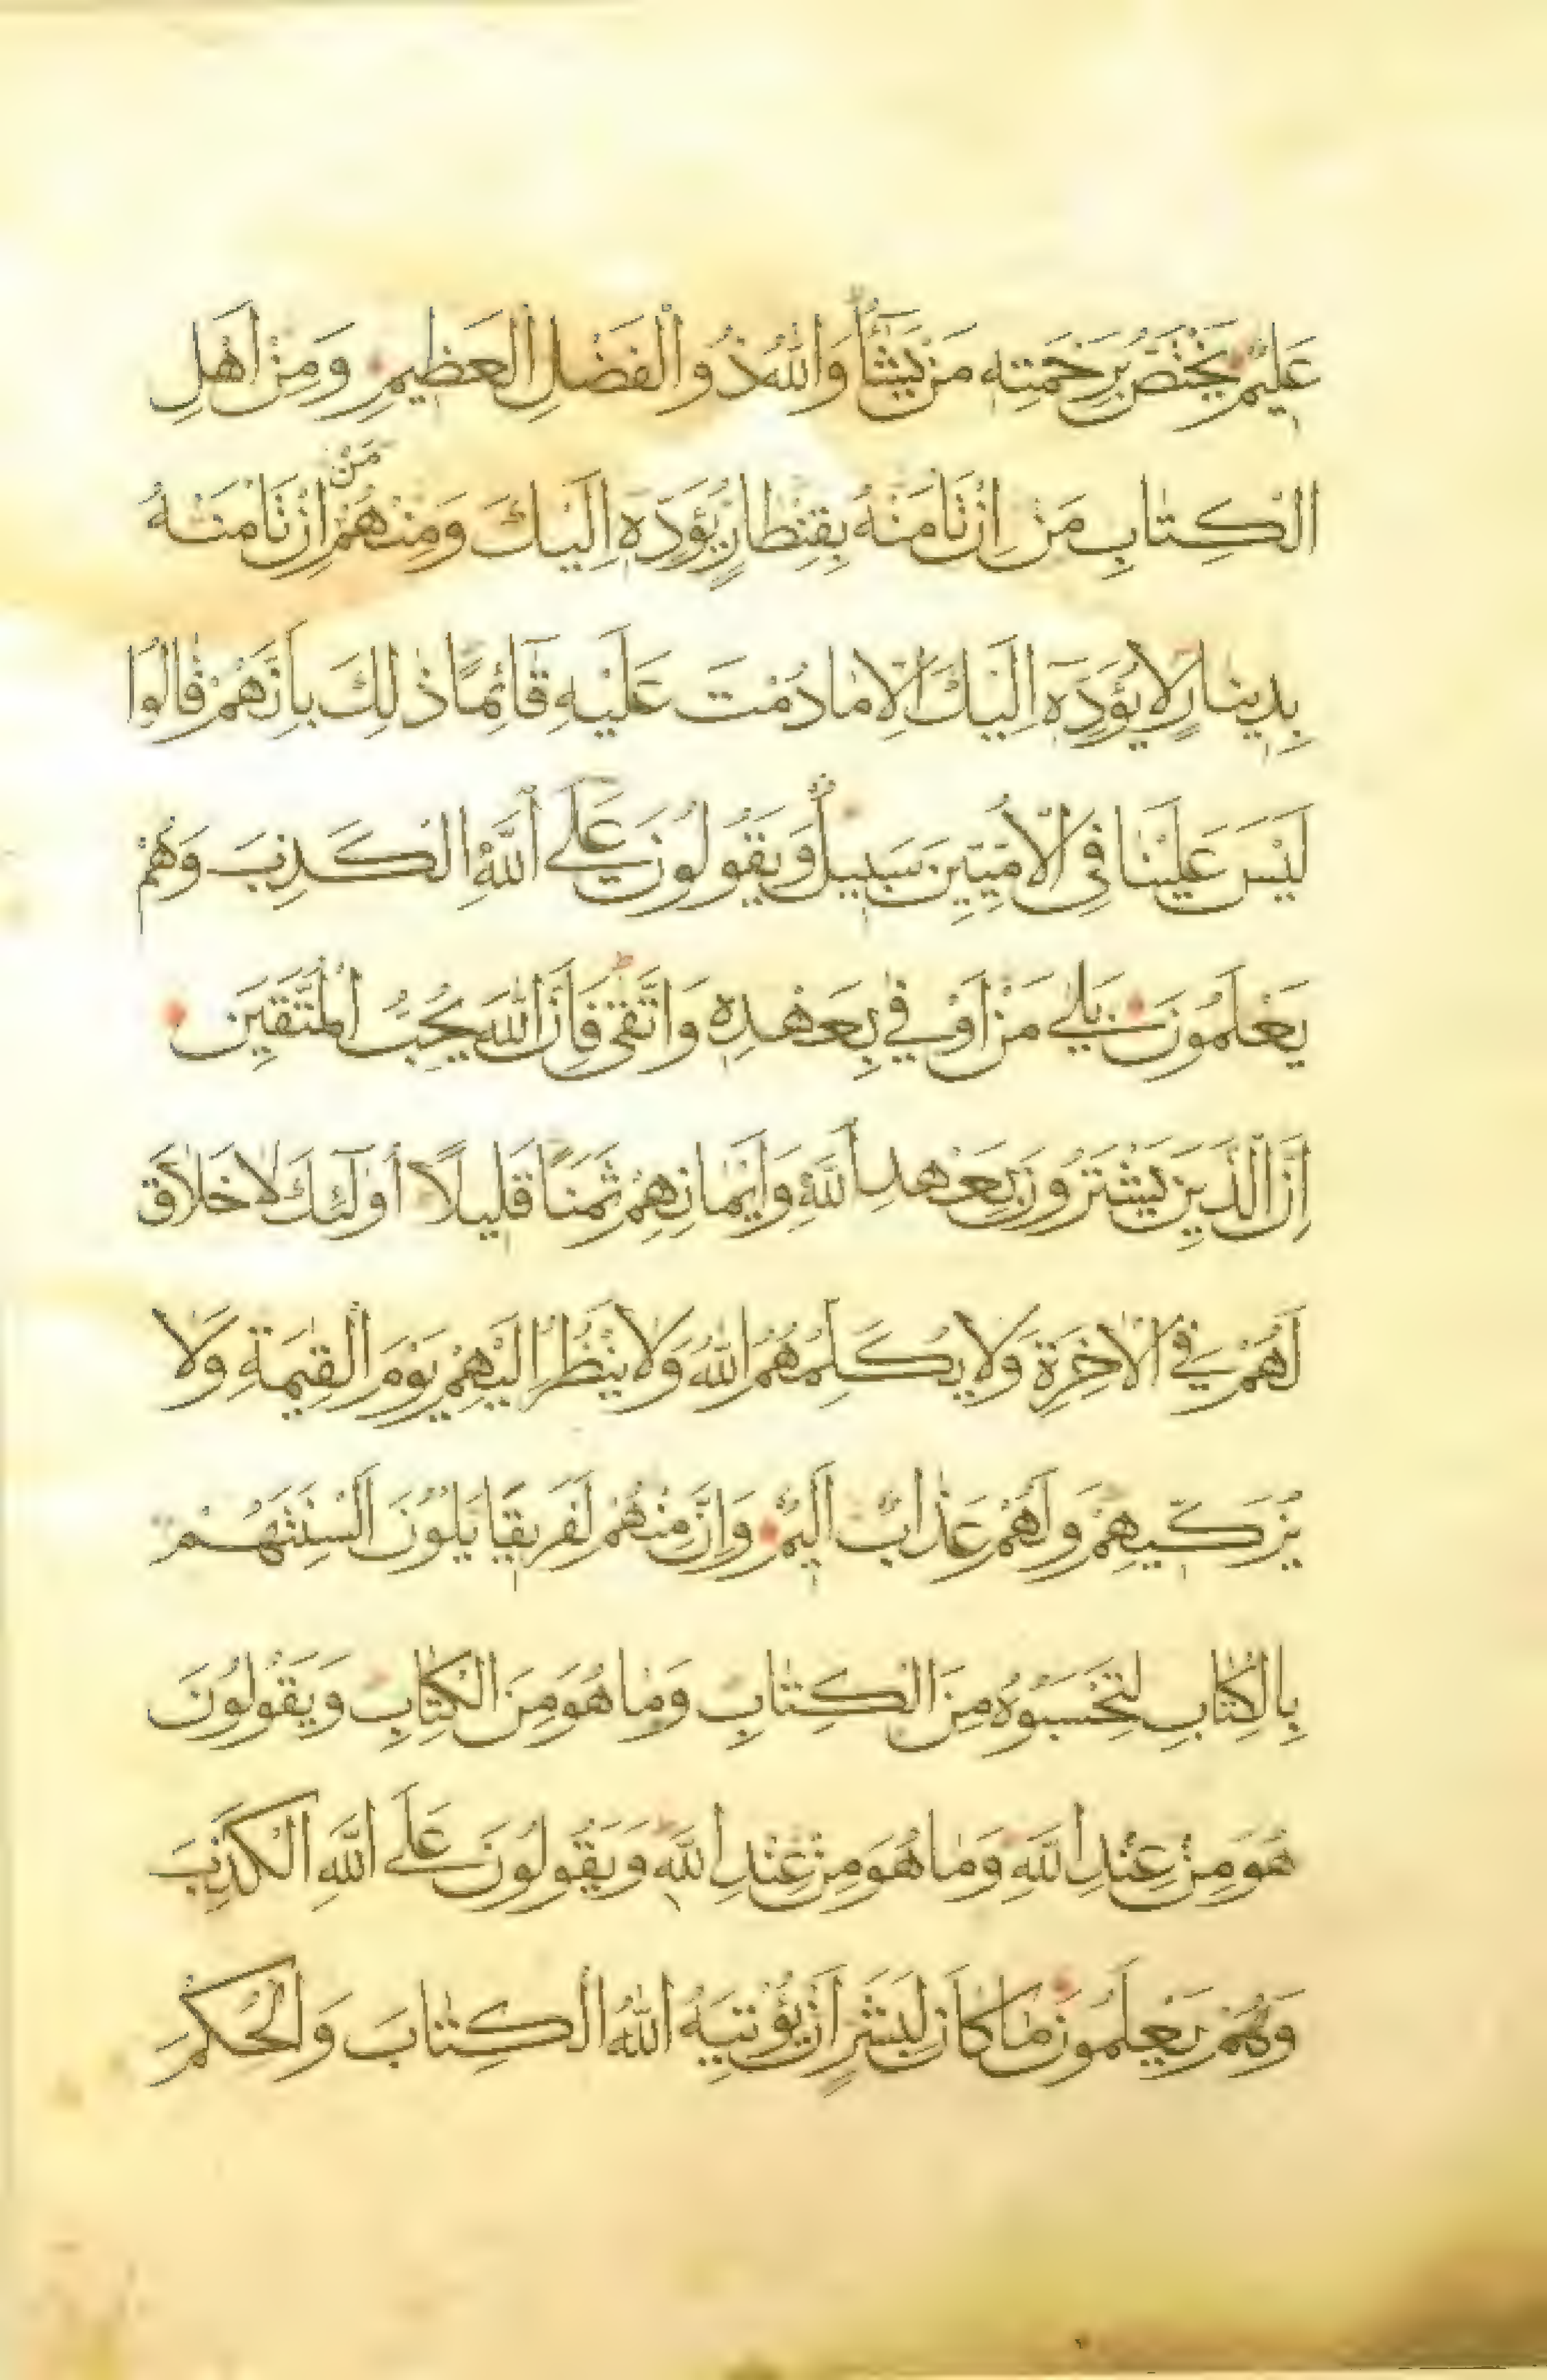 عَلِيمٌ يَخْتَصُّ بِرَحْمَتِهِ مَنْ يَشَآءُ وَاللّٰهُ ذُو الْفَضْلِ الْعَظِيمِ وَمِنْ اَهْلِ
الْكِتٰابِ مَنْ اِنْ تَامَنْهُ بِقِنْطٰارٍ يُؤَدِّهِ اِلَيْكَ وَمِنْهُمْ مَنْ اِنْ تَامَنْهُ
بِدِينٰارٍ لٰا يُؤَدِّهِ اِلَيْكَ اِلّٰا مٰا دُمْتَ عَلَيْهِ قٰائِمًا ذٰلِكَ بِاَنَّهُمْ قٰالُوا
لَيْسَ عَلَيْنٰا فِى الْاُمِّيِّينَ سَبِيلٌ وَيَقُولُونَ عَلَى اللّٰهِ الْكَذِبَ وَهُمْ
يَعْلَمُونَ بَلٰى مَنْ اَوْفٰى بِعَهْدِهِ وَاتَّقٰى فَاِنَّ اللّٰهَ يُحِبُّ الْمُتَّقِينَ
اِنَّ الَّذِينَ يَشْتَرُونَ بِعَهْدِ اللّٰهِ وَاَيْمٰانِهِمْ ثَمَنًا قَلِيلًا اُولٰٓئِكَ لٰا خَلٰاقَ
لَهُمْ فِى الْاٰخِرَةِ وَلٰا يُكَلِّمُهُمُ اللّٰهُ وَلٰا يَنْظُرُ اِلَيْهِمْ يَوْمَ الْقِيٰمَةِ وَلٰا
يُزَكِّيهِمْ وَلَهُمْ عَذٰابٌ اَلِيمٌ وَاِنَّ مِنْهُمْ لَفَرِيقًا يَلْوُونَ اَلْسِنَتَهُمْ
بِالْكِتٰابِ لِتَحْسَبُوهُ مِنَ الْكِتٰابِ وَمٰا هُوَ مِنَ الْكِتٰابِ وَيَقُولُونَ
هُوَ مِنْ عِنْدِ اللّٰهِ وَمٰا هُوَ مِنْ عِنْدِ اللّٰهِ وَيَقُولُونَ عَلَى اللّٰهِ الْكَذِبَ
وَهُمْ يَعْلَمُونَ مٰا كٰانَ لِبَشَرٍ اَنْ يُؤْتِيَهُ اللّٰهُ الْكِتٰابَ وَالْحُكْمَ